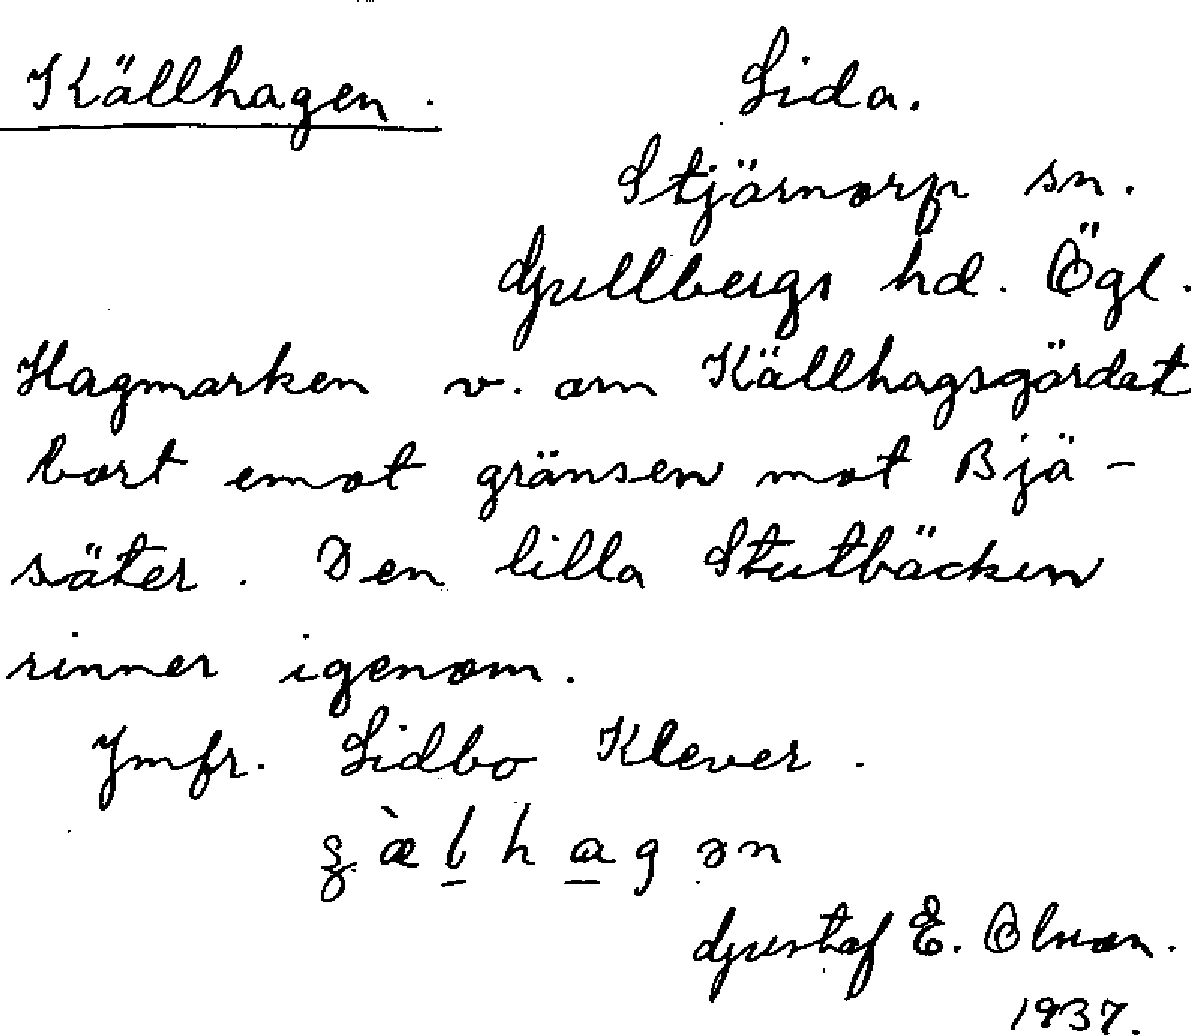 Källhagen. Lida.
Stjärnorp sn.
Gullbergs hd. Ögl.
Hagmarken v. om Källhagsgärdet
bort emot gränsen mot Bjä-
säter. Den lilla Stutbäcken
rinner igenom.
Jmfr. Lidbo Klever.
ʂæ̀lhagən
Gustaf E. Olsson.
1937.